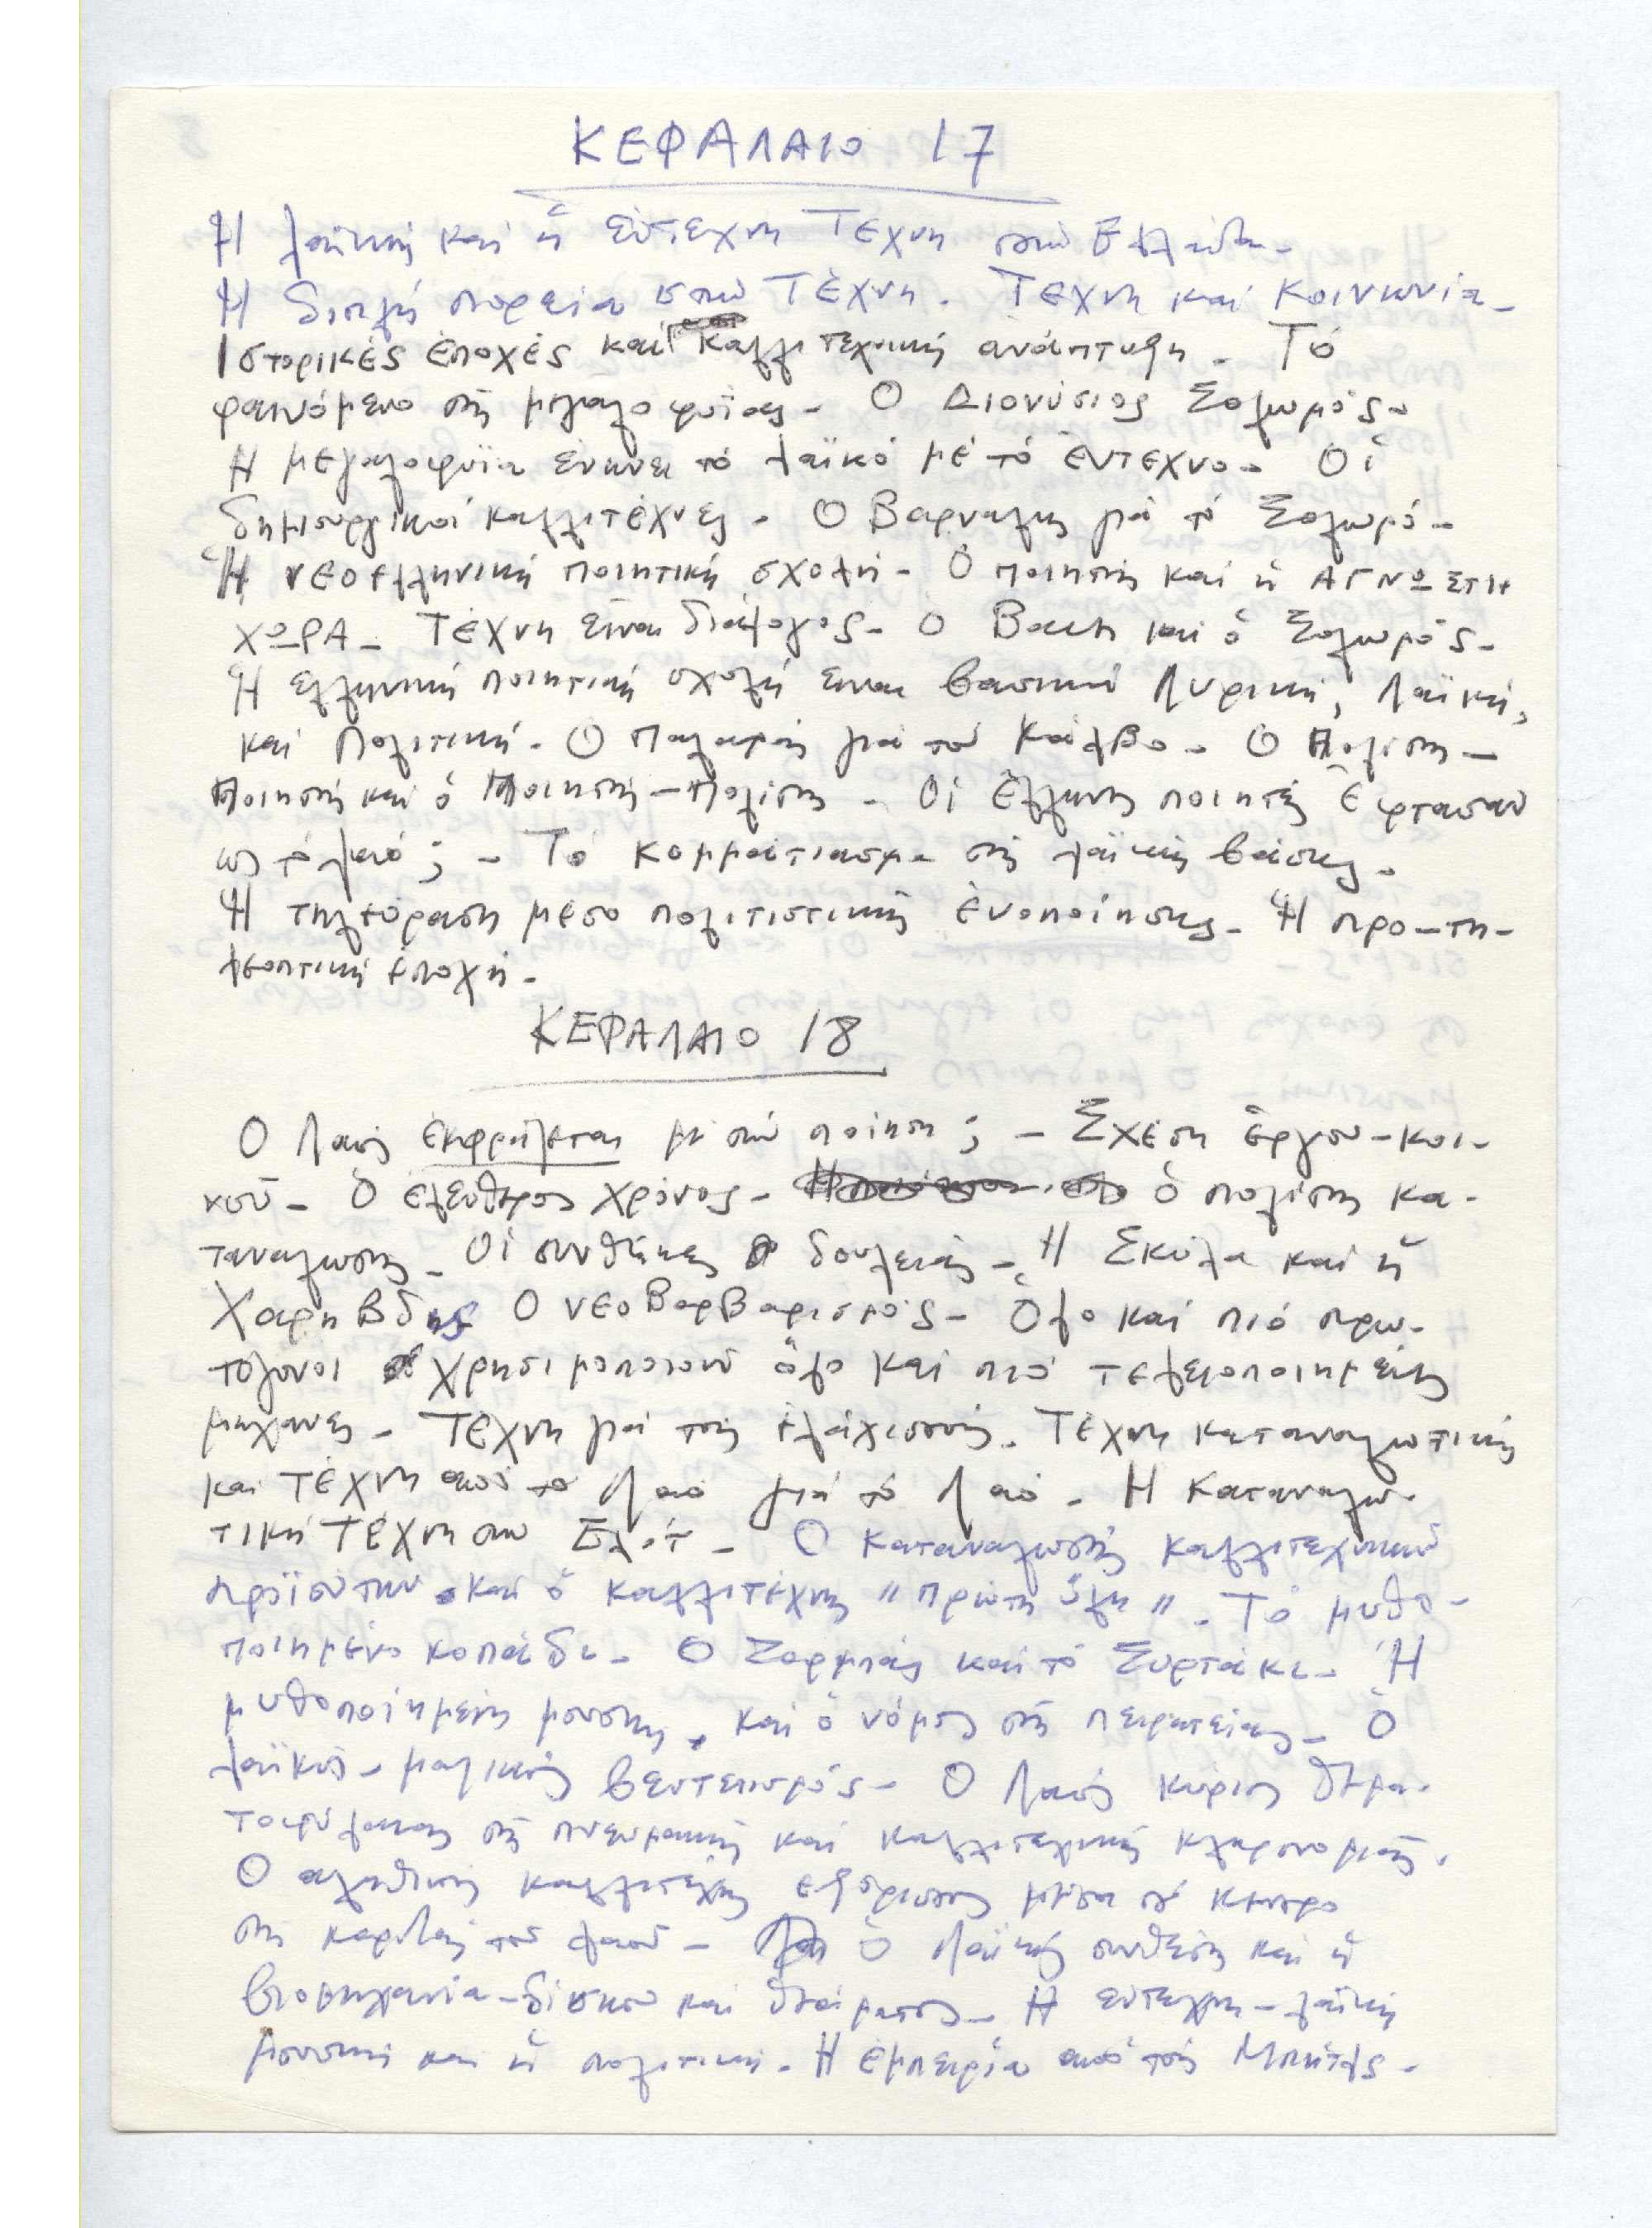 ΚΕΦΑΛΑΙΟ 17
Ἡ λαϊκή καί ἡ ἔντεχνη Τέχνη στήν Ἑλλάδα -
Ἡ διπλή πορεία στήν Τέχνη. Τέχνη καί Κοινωνία -
Ιστορικές ἐποχές καί καλλιτεχνική ἀνάπτυξη - Τό
φαινόμενο τῆς μεγαλοφυΐας - Ο Διονύσιος Σολωμός -
Η μεγαλοφυΐα ἑνώνει τό λαϊκό μέ τό ἔντεχνο - Οἱ
δημιουργικοί καλλιτέχνες - Ο Βάρναλης γιά τό Σολωμό -
Ἡ νεοελληνική ποιητική σχολή - Ὁ ποιητής καί ἡ ΑΓΝΩΣΤΗ
ΧΩΡΑ - Τέχνη εἶναι διάλογος - Ὁ Bach καί ὁ Σολωμός -
Ἡ ελληνική ποιητική σχολή ειναι βασικά Λυρική, Λαϊκή,
και Πολιτική - Ο Παλαμάς γιά τόν Κάλβο - Ο Πολίτης -
Ποιητής καί ὁ Ποιητής - Πολίτης - Οἱ Ἕλληνες ποιητές ἔφτασαν
ως τό λαό; - Τό κομμάτιασμα τῆς λαϊκῆς βάσης -
Ἡ τηλεόραση μέσο πολιτιστικῆς ἑνοποίησης - Ἡ προ-τη-
λεοπτική ἐποχή -
ΚΕΦΑΛΑΙΟ 18
Ο Λαός ἐκφράζεται μέ τήν ποίηση; - Σχέση ἔργου - κοι-
νοῦ - Ὁ ἐλεύθερος χρόνος - ὁ πολίτης κα-
ταναλωτής - Οἱ συνθῆκες δουλειᾶς - Ἡ Σκύλα καί ἡ
Χαρηβδης Ο νεοβαρβαρισμός - Ὅλο καί πιό πρω-
τόγονοι χρησιμοποιοῦν ὅλο καί πιό τελειοποιημένες
μηχανές - Τέχνη γιά τούς ἐλάχιστους. Τέχνη καταναλωτική
καί Τέχνη ἀπό τό Λαό γιά τό Λαό - Η Καταναλω-
τική Τέχνη τῶν Ελίτ - Ο καταναλωτής καλλιτεχνικῶν
προϊόντων καί ὁ καλλιτέχνης "πρώτη ὕλη". Τό μυθο-
ποιημένο κοπάδι - Ο Ζορμπάς καί τό Συρτάκι - Ἡ
μυθοποιημένη μουσική, καί ὁ νόμος τῆς πειρατείας - Ὁ
λαϊκός - μαγικός βεντετισμός - Ο Λαός κύριος θεμα-
τοφύλακας τῆς πνευματικῆς καί καλλιτεχνικῆς κληρονομιᾶς.
Ο αληθινός καλλιτέχνης εξόριστος μέσα στό κάστρο
τῆς καρδιᾶς τοῦ λαοῦ - Ὁ Λαϊκός συνθέτης καί ἡ
βιομηχανία - δίσκου καί θεάματος - Η ἔντεχνη - λαϊκή
μουσική καί ἡ πολιτική - Η ἐμπειρία ἀπό τούς Μπητλς -